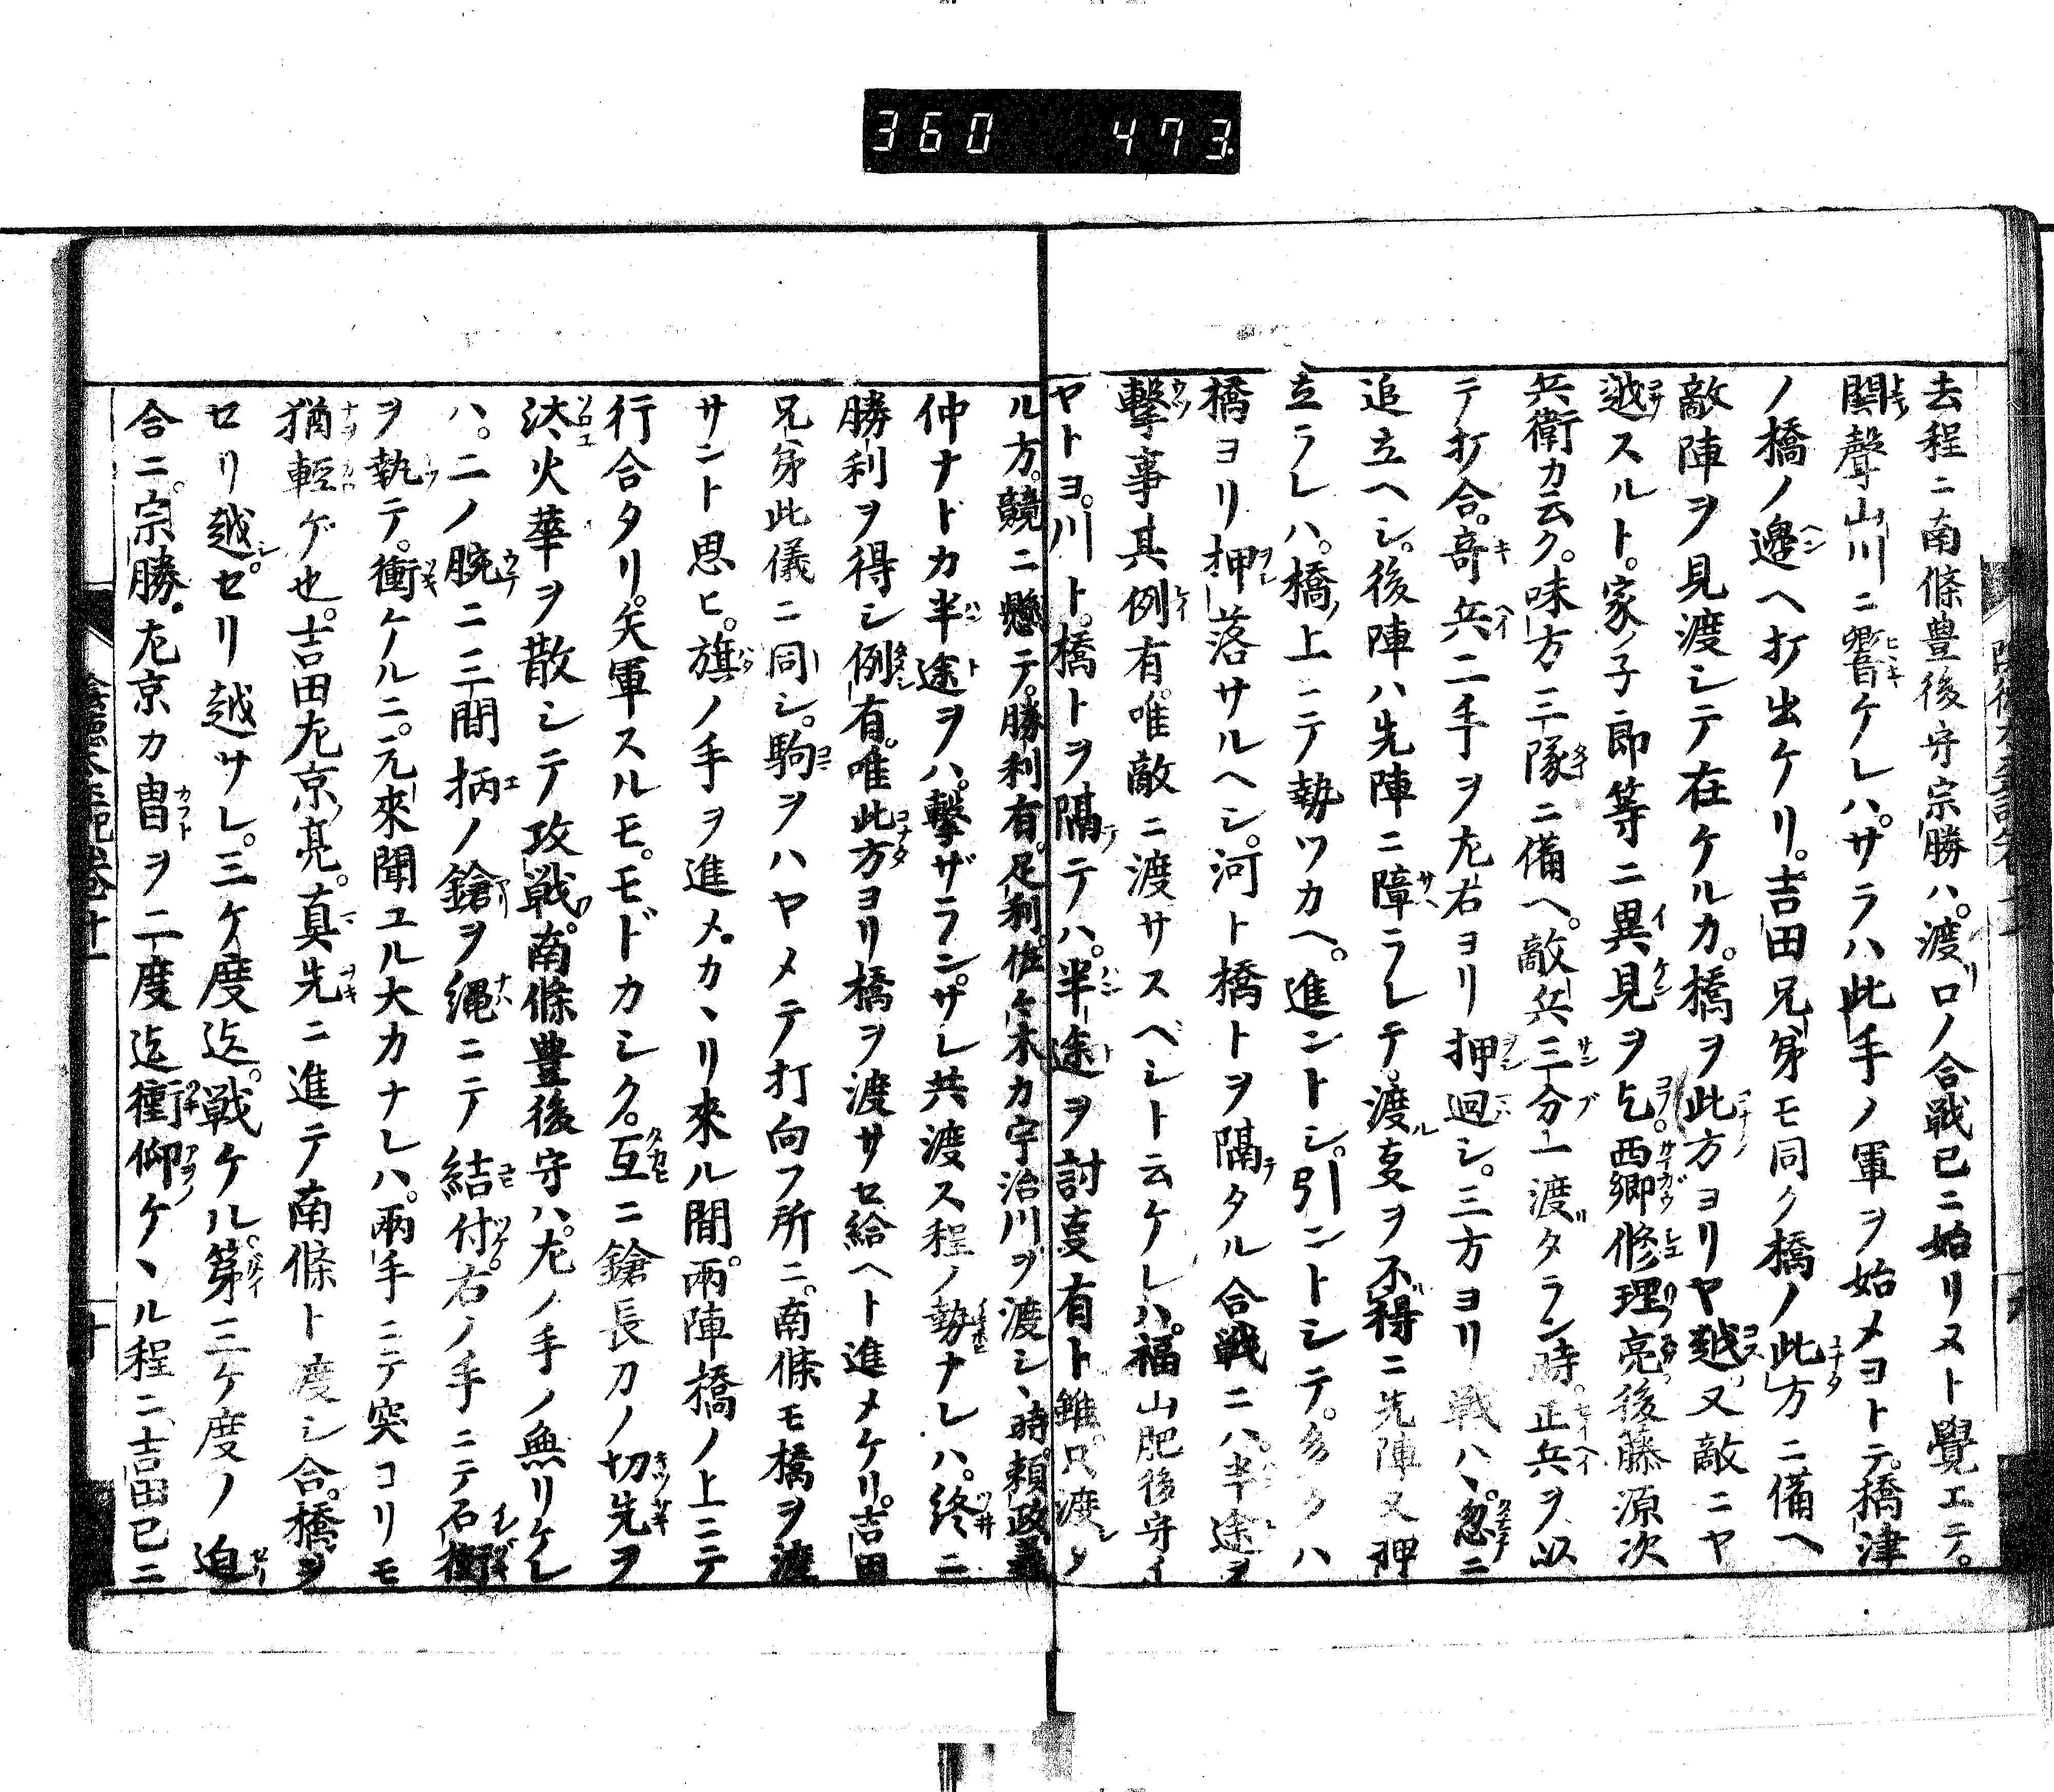 360 473
去程ニ南條豊後守宗勝ハ。渡リ口ノ合戦已ニ始リヌト覺エテ。
鬨聲山川ニ響ケレハ。サラハ此手ノ軍ヲ始メヨトテ。橋津
ノ橋ノ邊ヘ打出ケリ。吉田兄弟モ同ク橋ノ此方ニ備ヘ
敵陣ヲ見渡シテ在ケルカ。橋ヲ此方ヨリヤ越ス。又敵ニヤ
越スルト。家ノ子郎等ニ異見ヲ乞。西郷修理亮後藤源次
兵衛カ云ク。味方三隊ニ備ヘ。敵兵三分一渡ダラン時。正兵ヲ以
テ打合。竒兵二手ヲ左右ヨリ押迴シ。三方ヨリ戦ハヽ。忽ニ
追立ヘシ。後陣ハ先陣ニ障ラレテ。渡ル叓ヲ不得ニ先陣又押
立ラレハ。橋ノ上ニテ勢ツカヘ。進ントシ。引ントシテ。多クハ
橋ヨリ押落サルヘシ。河ト橋トヲ隔タル合戦ニハ。半途ヲ
撃事其例有。唯敵ニ渡サスベシト云ケレハ。福山肥後守イ
ヤトヨ。川ト。橋トヲ隔テハ。半途ヲ討叓有ト雖。只渡シタ
ル方。競ニ懸テ。勝利有。足利。佐々木カ宇治川ヲ渡シヽ時。頼政兼
仲ナドカ半途ヲハ。撃ザラン。サレ共渡ス程ノ勢ナレハ。終ニ
勝利ヲ得シ例有。唯此方ヨリ橋ヲ渡サセ給ヘト進メケリ。吉田
兄弟此儀ニ同シ。駒ヲハヤメテ打向フ所ニ。南條モ橋ヲ渡
サント思ヒ。旗ノ手ヲ進メ。カヽリ來ル間。両陣橋ノ上ニテ
行合タリ。矢軍スルモ。モドカシク。互ニ鎗長刀ノ切先ヲ
汰ヘ火華ヲ散シテ攻戦フ。南條豊後守ハ。左ノ手ノ無リケレ
ハ。二ノ腕ニ三間柄ノ鎗ヲ縄ニテ結付。右ノ手ニテ石衝
ヲ執テ。衝ケルニ。元來聞ユル大カナレハ。両手ニテ突コリモ
猶輕ゲ也。吉田左京ノ亮。真先ニ進テ南條ト度シ合。橋ヲ
セリ越シ。セリ越サレ。三ケ度迄。戦ケル。第三ケ度ノ迫
合ニ。宗勝。左京カ冑ヲ二度迄衝仰ケヽル程ニ、吉田已ニ